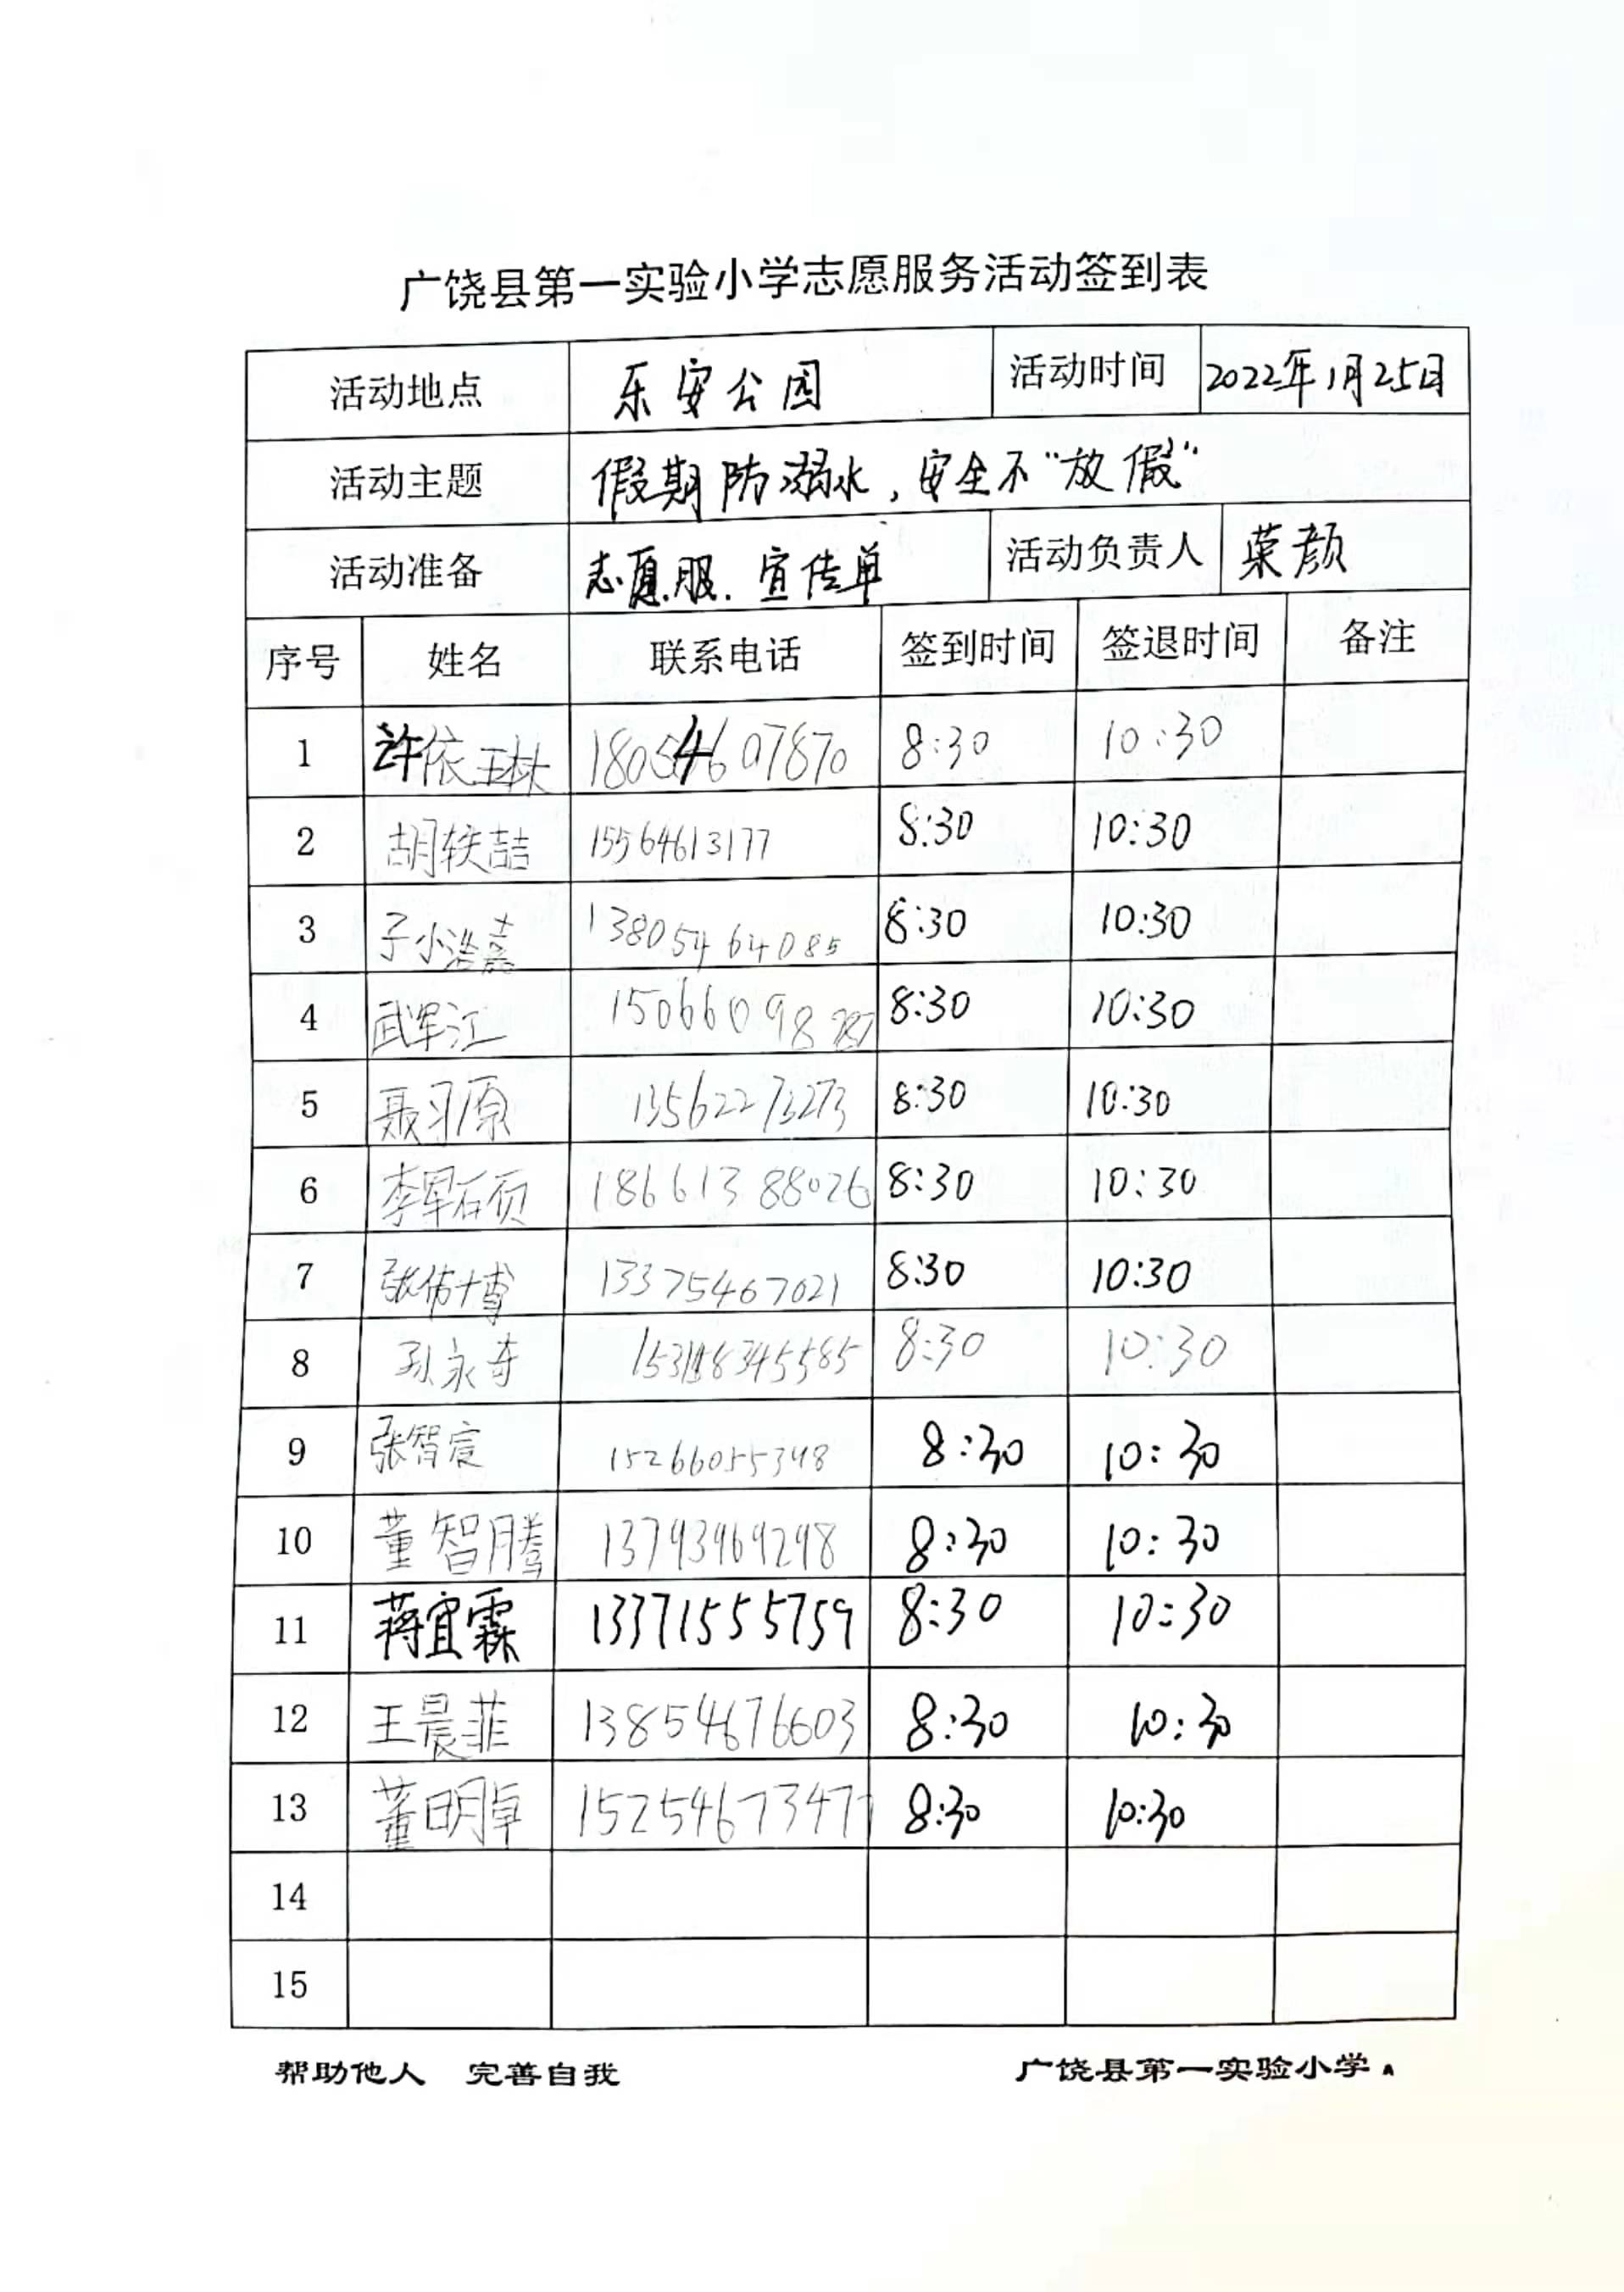 广饶县第一实验小学志愿服务活动签到表
活动地点 乐安公园 活动时间 2022年1月25日
活动主题 假期防溺水，安全不“放假”
活动准备 志愿服.宣传单 活动负责人 荣颜
序号 姓名 联系电话 签到时间 签退时间 备注
1 许依琳 18054607870 8:30 10:30
2 胡轶喆 15564613177 8:30 10:30
3 子小浩嘉 13805464085 8:30 10:30
4 武军江 15066098787 8:30 10:30
5 聂羽原 13562273273 8:30 10:30
6 李军硕 18661388026 8:30 10:30
7 张伟博 13375467021 8:30 10:30
8 孙永奇 8:30 10:30
9 张智宸 15266055348 8:30 10:30
10 董智腾 13793969298 8:30 10:30
11 蒋宜霖 13371555759 8:30 10:30
12 王晨菲 13854676603 8:30 10:30
13 董明卓 15254673477 8:30 10:30
14
15
帮助他人 完善自我 广饶县第一实验小学